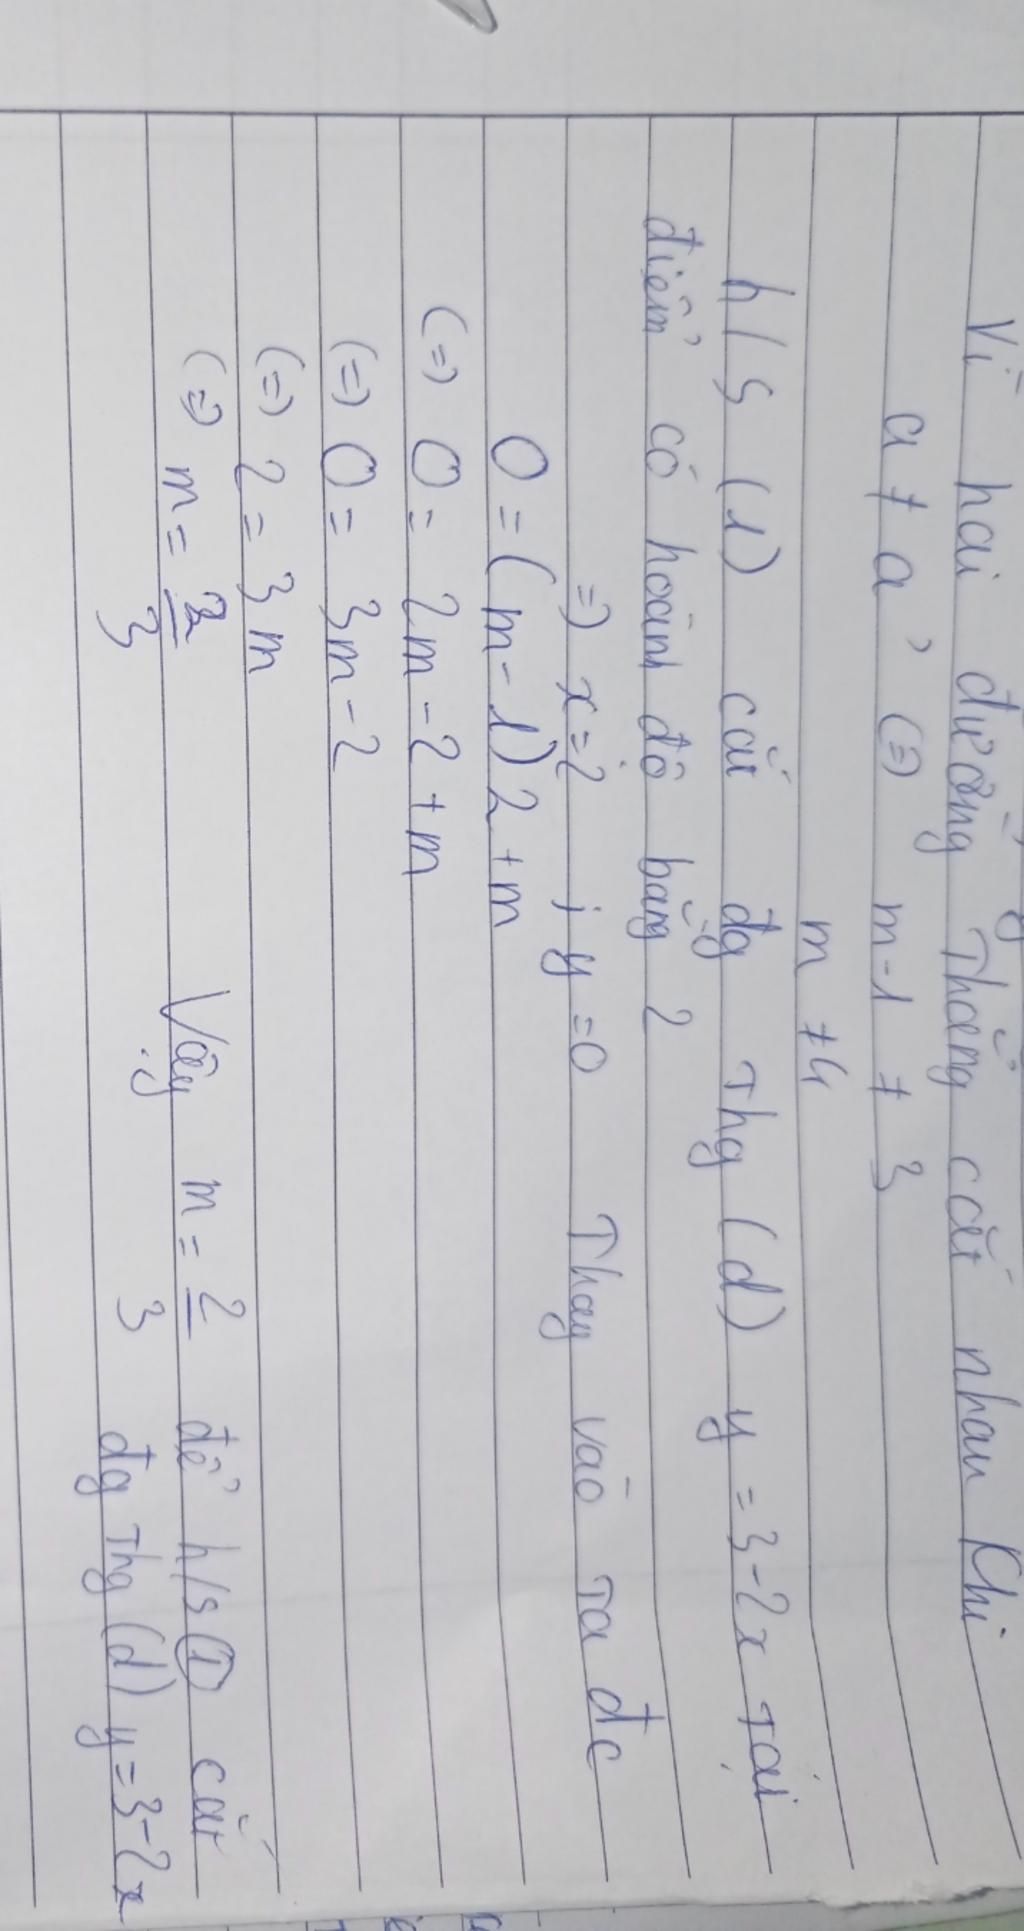 Vì hai đường thẳng cắt nhau khi
a ≠ a' (=) m-1 ≠ 3
m ≠ 4
h/s (1) cắt đg thg (d) y = 3-2x tại
điểm có hoành độ bằng 2
=) x=2 ; y=0 Thay vào ta đc
0 = (m-1)2 + m
(=) 0 = 2m-2+m
(=) 0 = 3m-2
(=) 2 = 3m
(=) m = 2/3 Vậy m = 2/3 để h/s (1) cắt
đg thg (d) y=3-2x